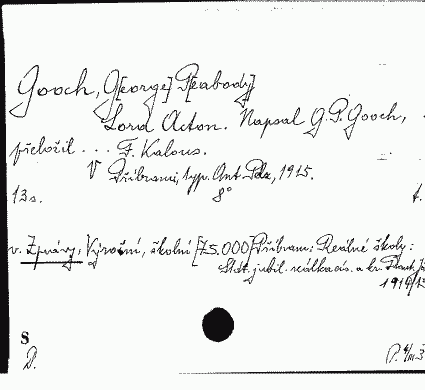 Gooch, G[eorge] P[eabody]
Lord Acton. Napsal G. P. Gooch,
přeložil ... F. Kalous.
V Příbrami, typ. Ant. Pelz, 1915.
13 s. 8°
v. Zprávy, Výroční, školní [75.000] Příbram: Reálné školy:
Stát. jubil. reálka cís. a kr. Frant. Jos.
S
D.